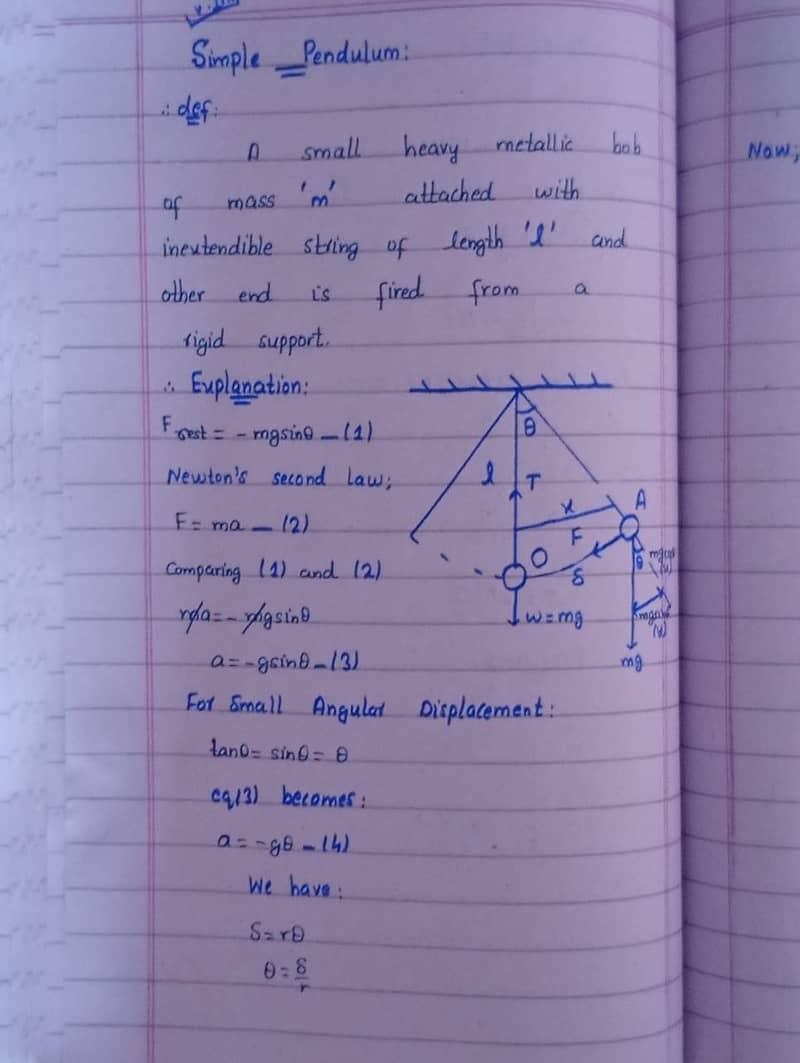 Simple Pendulum:
∴ def:
A small heavy metallic bob
of mass 'm' attached with
inextendible string of length 'l' and
other end is fixed from a
rigid support.
∴ Explanation:
F rest = - mgsinθ — (1)
Newton's second law;
F = ma — (2)
Comparing (1) and (2)
ma = - mgsinθ
a = -gsinθ — (3)
For Small Angular Displacement:
tanθ = sinθ = θ
eq(3) becomes:
a = -gθ — (4)
We have:
S = rθ
θ = S/r
θ
l
T
x
A
F
O
S
θ
w = mg
mg
Now;